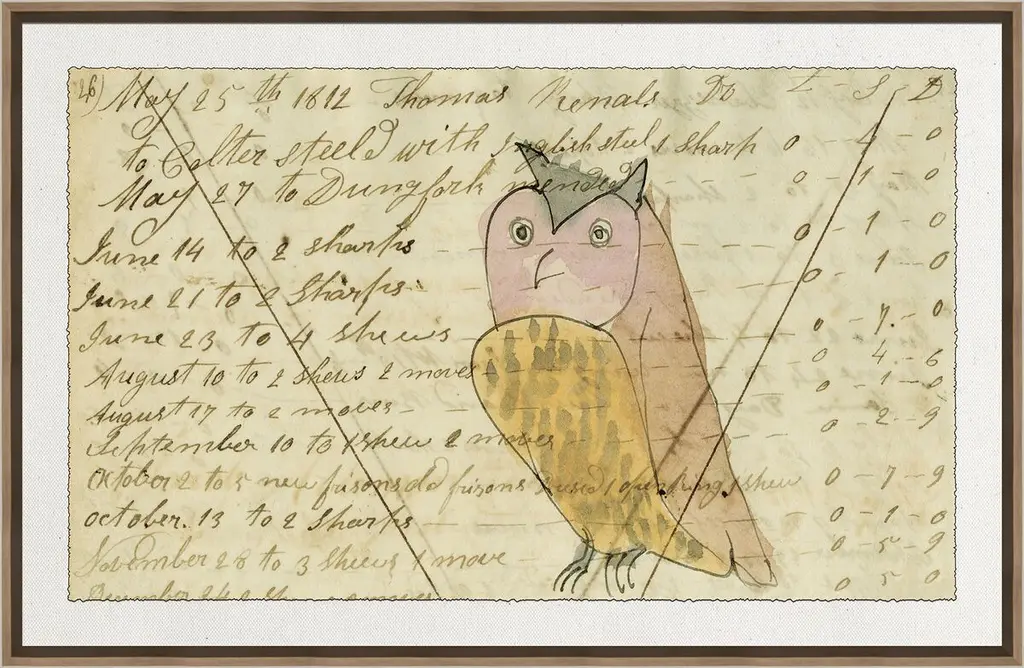 26) May 25th 1812 Thomas Nenals Dr £ - S - D
to Colter steeld with English steel 1 sharp 0 - 4 - 0
May 27 to Dungfork mended 0 - 1 - 0
June 14 to 2 sharps 0 - 1 - 0
June 21 to 2 Sharps 0 - 1 - 0
June 23 to 4 shews 0 - 7 - 0
August 10 to 2 shews 2 moves 0 - 4 - 6
August 17 to 2 moves 0 - 1 - 0
September 10 to 1 shew 2 moves 0 - 2 - 9
October 2 to 5 new frisons old frisons 3 used 1 1 shew 0 - 7 - 9
october. 13 to 2 sharps 0 - 1 - 0
November 28 to 3 shews 1 move 0 - 5 - 9
December 24 2 moves 0 5 0